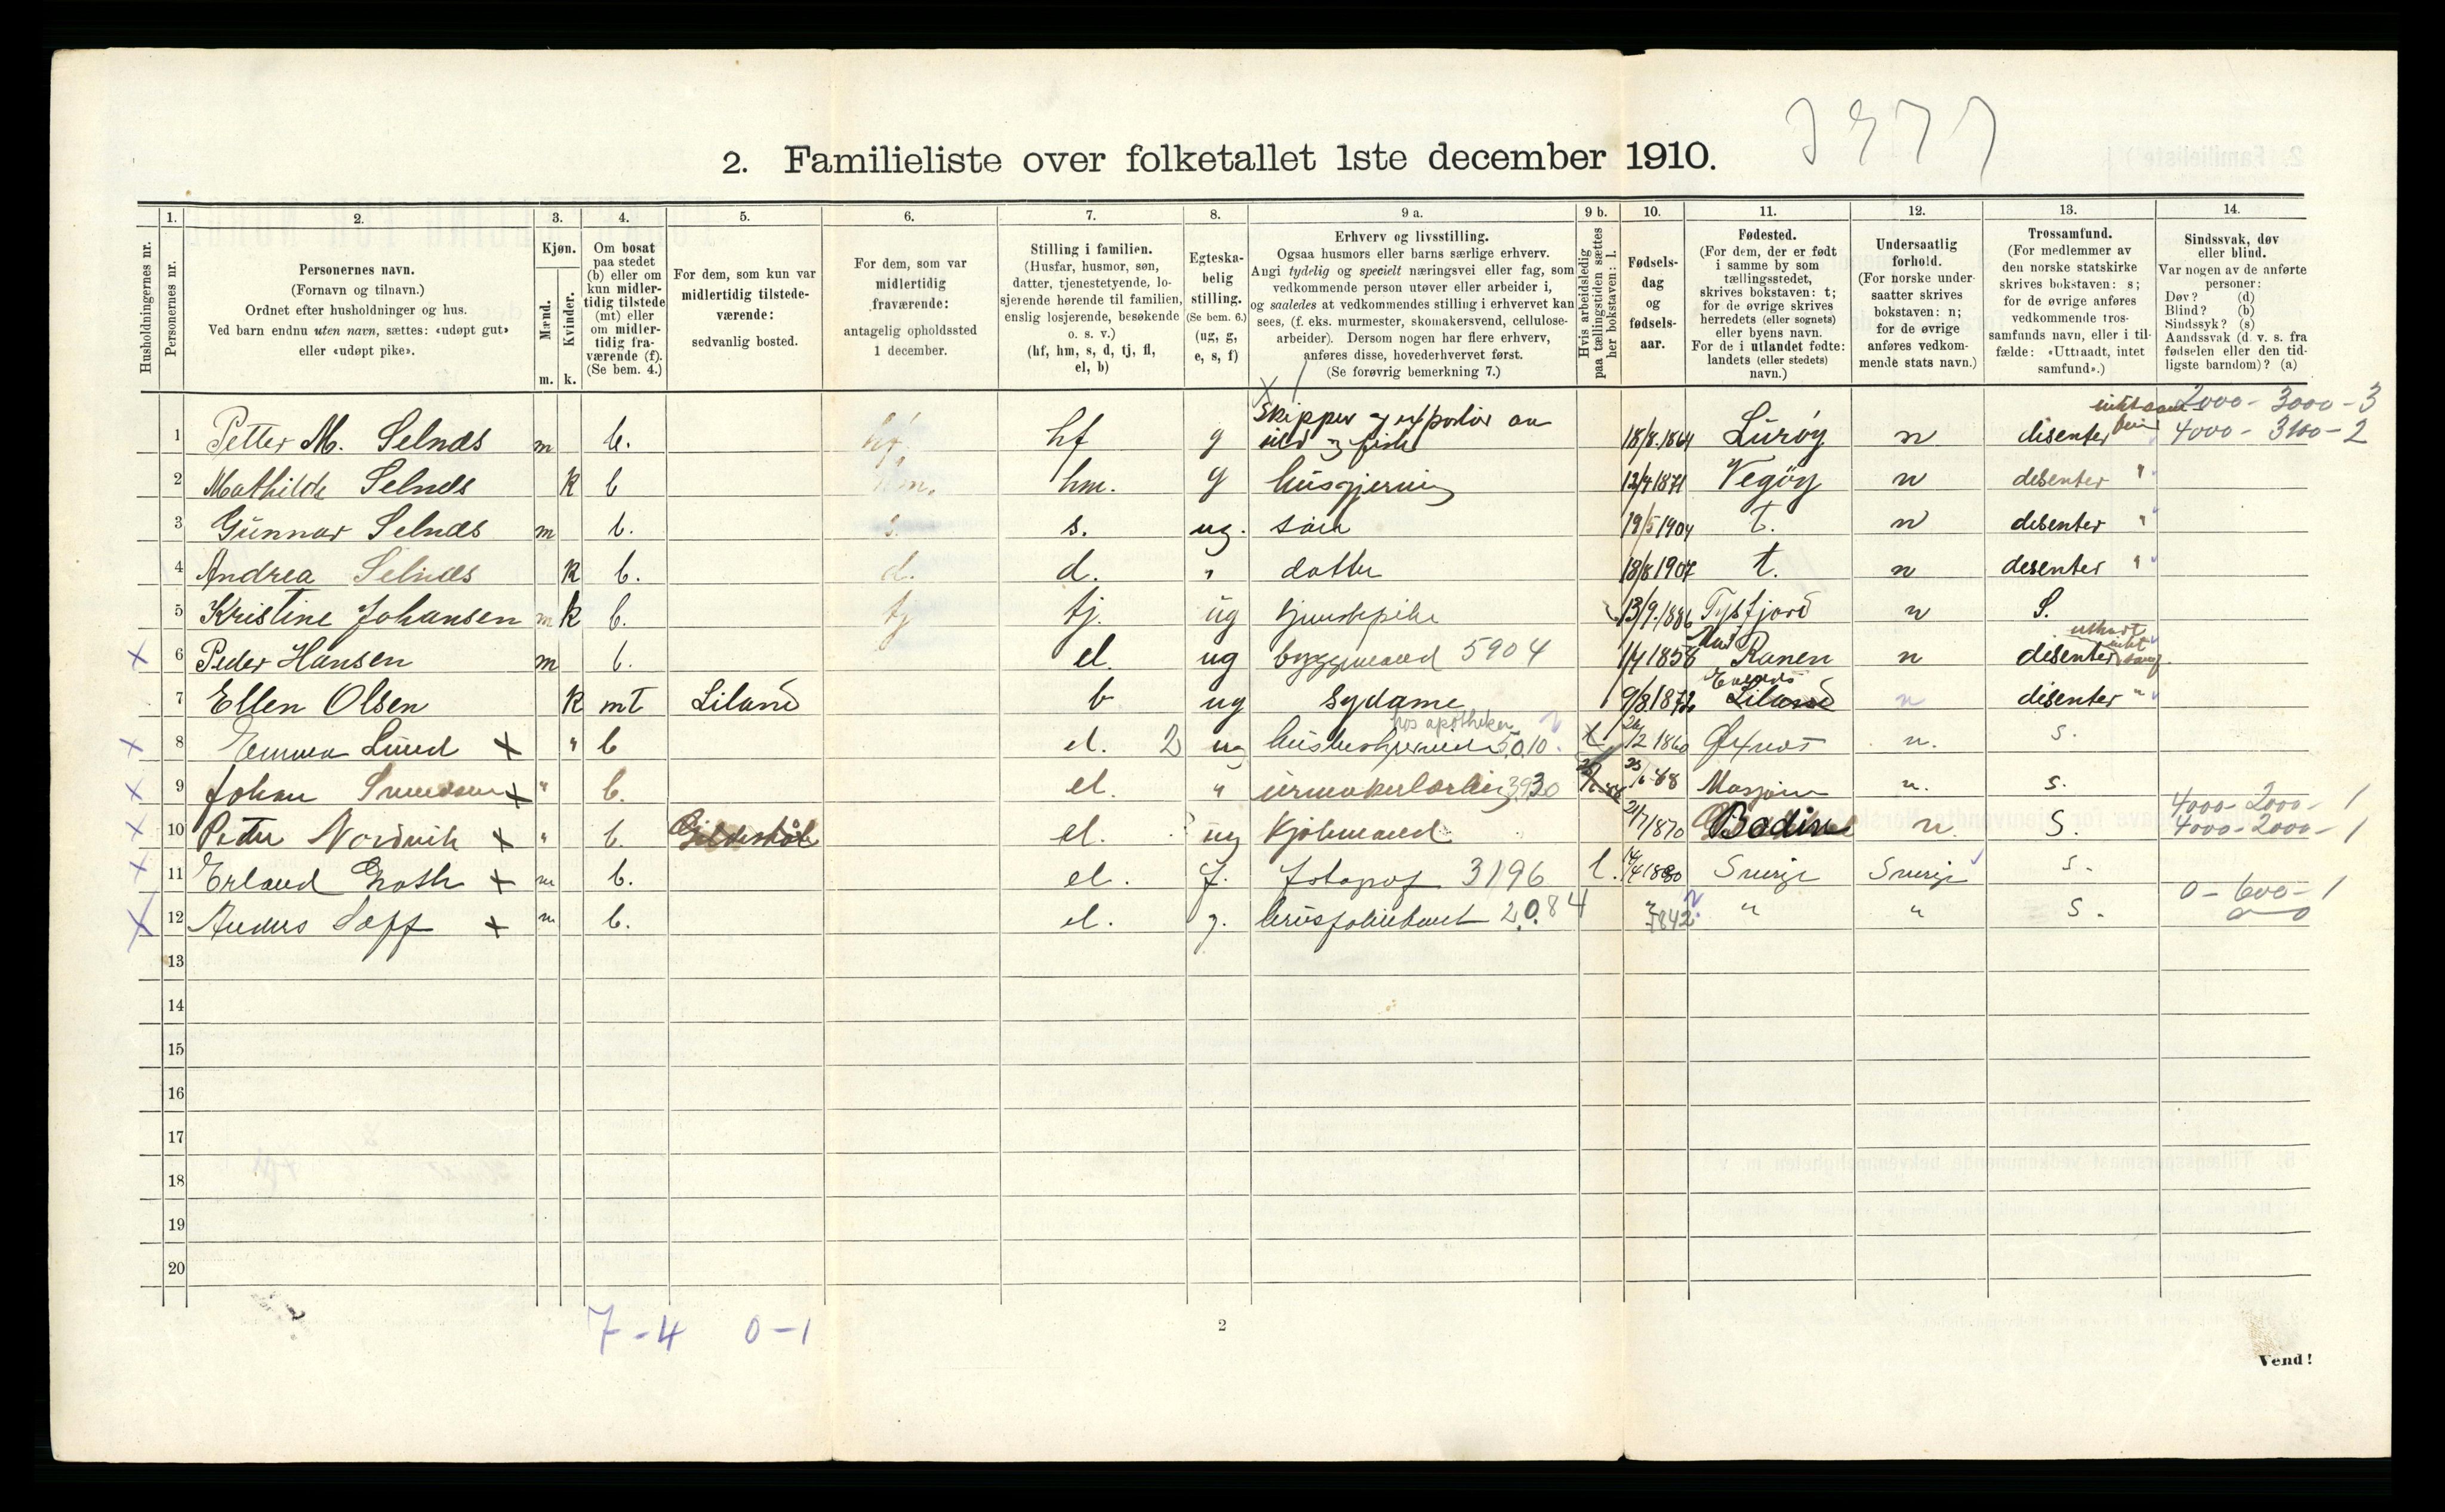 2. Familieliste over folketallet 1ste december 1910.
Husholdningernes nr.
1.
Personernes nr.
2.
Personernes navn.
(Fornavn og tilnavn.)
Ordnet efter husholdninger og hus.
Ved barn endnu uten navn, sættes: «udøpt gut»
eller «udøpt pike».
3.
Kjøn.
Mænd.
Kvinder.
m. k.
4.
Om bosat
paa stedet
(b) eller om
kun midler-
tidig tilstede
(mt) eller
om midler-
tidig fra-
værende (f).
(Se bem. 4.)
5.
For dem, som kun var
midlertidig tilstede-
værende:
sedvanlig bosted.
6.
For dem, som var
midlertidig
fraværende:
antagelig opholdssted
1 december.
7.
Stilling i familien.
(Husfar, husmor, søn,
datter, tjenestetyende, lo-
sjerende hørende til familien,
enslig losjerende, besøkende
o. s. v.)
(hf, hm, s, d, tj, fl,
el, b)
8.
Egteska-
belig
stilling.
(Se bem. 6.)
(ug, g,
e, s, f)
9 a.
Erhverv og livsstilling.
Ogsaa husmors eller barns særlige erhverv.
Angi tydelig og specielt næringsvei eller fag, som
vedkommende person utøver eller arbeider i,
og saaledes at vedkommendes stilling i erhvervet kan
sees, (f. eks. murmester, skomakersvend, cellulose-
arbeider). Dersom nogen har flere erhverv,
anføres disse, hovederhvervet først.
(Se forøvrig bemerkning 7.)
9 b.
Hvis arbeidsledig
paa tællingstiden sættes
her bokstaven: l.
10.
Fødsels-
dag
og
fødsels-
aar.
11.
Fødested.
(For dem, der er født
i samme by som
tællingsstedet,
skrives bokstaven: t;
for de øvrige skrives
herredets (eller sognets)
eller byens navn.
For de i utlandet fødte:
landets (eller stedets)
navn.)
12.
Undersaatlig
forhold.
(For norske under-
saatter skrives
bokstaven: n;
for de øvrige
anføres vedkom-
mende stats navn.)
13.
Trossamfund.
(For medlemmer av
den norske statskirke
skrives bokstaven: s;
for de øvrige anføres
vedkommende tros-
samfunds navn, eller i til-
fælde: «Uttraadt, intet
samfund».)
14.
Sindssvak, døv
eller blind.
Var nogen av de anførte
personer:
Døv? (d)
Blind? (b)
Sindssyk? (s)
Aandssvak (d. v. s. fra
fødselen eller den tid-
ligste barndom)? (a)
2000 - 3000 - 3
1 Petter M. Selnæs m b. hf. hf g Skipper og exportør av sild og fisk 18/8.1864 Lurøy n disenter 4000 - 3100 - 2
2 Mathilde Selnæs k b hm. hm. g husgjerning 12/4 1871 Vegøy n disenter "
3 Gunnar Selnæs m b. s. s. ug. søn 19/5 1904 t. n disenter "
4 Andrea Selnæs k b. d. d. " datter 18/8 1907 t. n disenter "
5 Kristine Johansen m k b. tj tj. ug tjenstepike 13/9.1886 Tysfjord n S.
x 6 Peder Hansen m b. el. ug byggmand 5904 1/1 1858 Ranen n disenter
7 Ellen Olsen k mt Liland b ug sydame 9/8.1872 Evenes Liland n disenter "
hos apotheker
x 8 Emma Lund x " b el. 2 ug 5010. 26/2 1860 Øxnes n. s.
x 9 Johan x " b. el. " 3930 25/6 88 Mosjøen n. s.
4000 - 2000 - 1
x 10 Peter Nordvik x " b. Gildeskål el. ug Kjøbmand 21/7 1870 Bodin n. S. 4000 - 2000 - 1
x 11 Erland x m b. el. f. fotograf 3196 l. 14/4 1880 Sverige Sverige s.
0 - 600 - 1
x 12 Anders x m b. el. g. 2084 1842 " " s. 0 0
13
14
15
16
17
18
19
20
7 - 4 0 - 1
2
Vend!